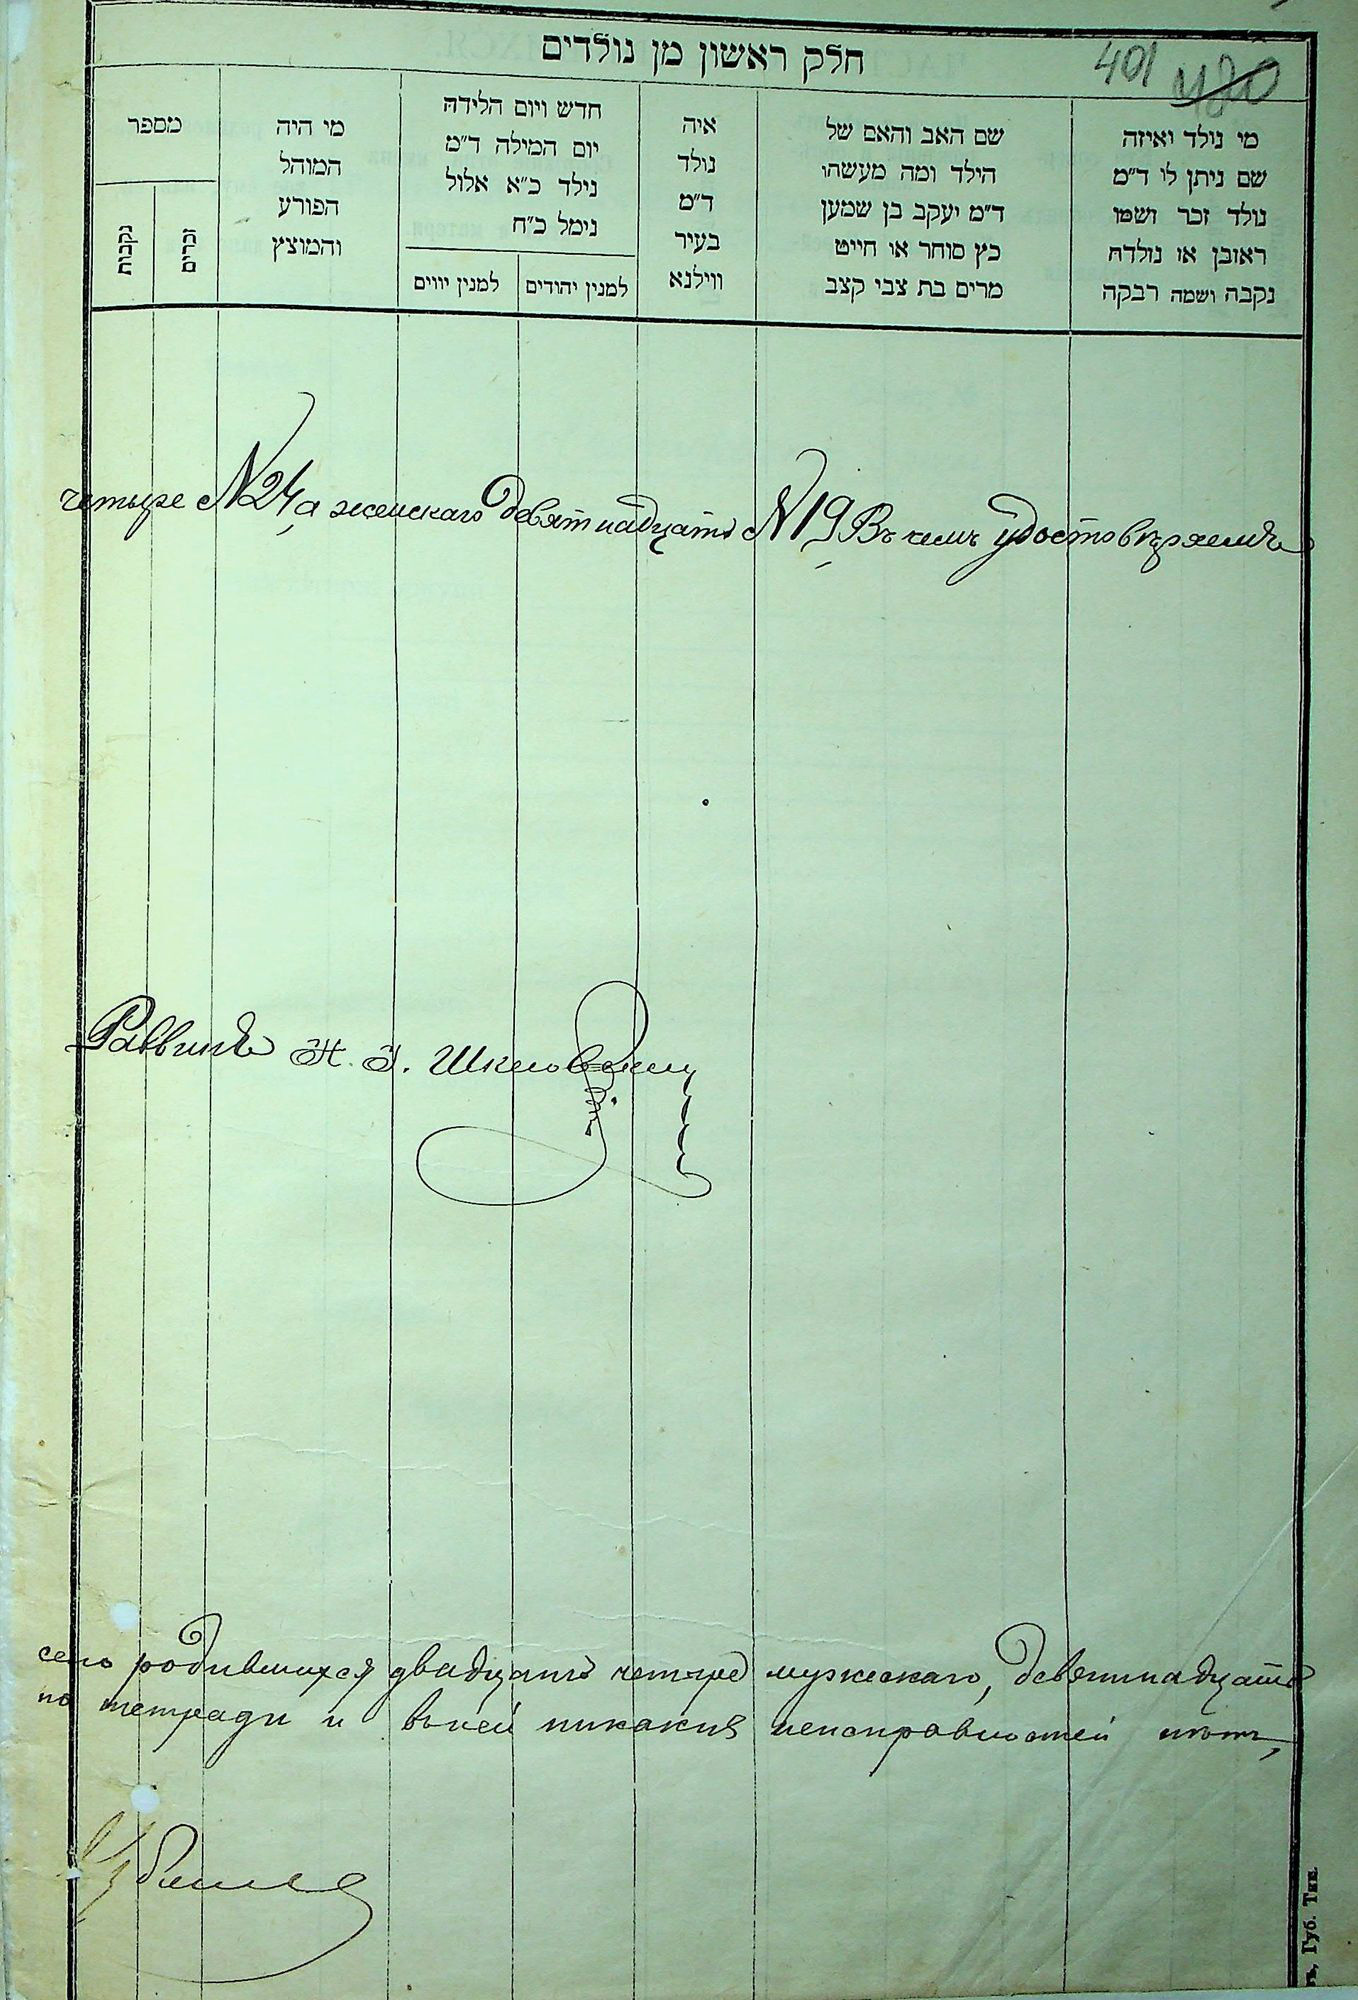 401 480
חלק ראשון מן נולדים
מי נולד ואיזה
שם ניתן לו ד"מ
נולד זכר ושמו
ראובן או נולדה
נקבה ושמה רבקה
שם האב והאם של
הילד ומה מעשהו
ד"מ יעקב בן שמען
כץ סוחר או חייט
מרים בת צבי קצב
איה
נולד
ד"מ
בעיר
ווילנא
חדש ויום הלידה
יום המילה ד"מ
נילד כ"א אלול
נימל כ"ח
למנין יהודים
למנין יווים
מי היה
המוהל
הפורע
והמוצץ
מספר
זכרים
נקבות
четыре №24, а женскаго девятнадцать №19 Въ чемъ удостовѣряемъ
Раввинъ Шкловскій
сего родившихся двадцать четыре мужескаго, девятнадцать
по тетради и въ ней никакихъ неисправностей нѣтъ,
Губ. Тип.